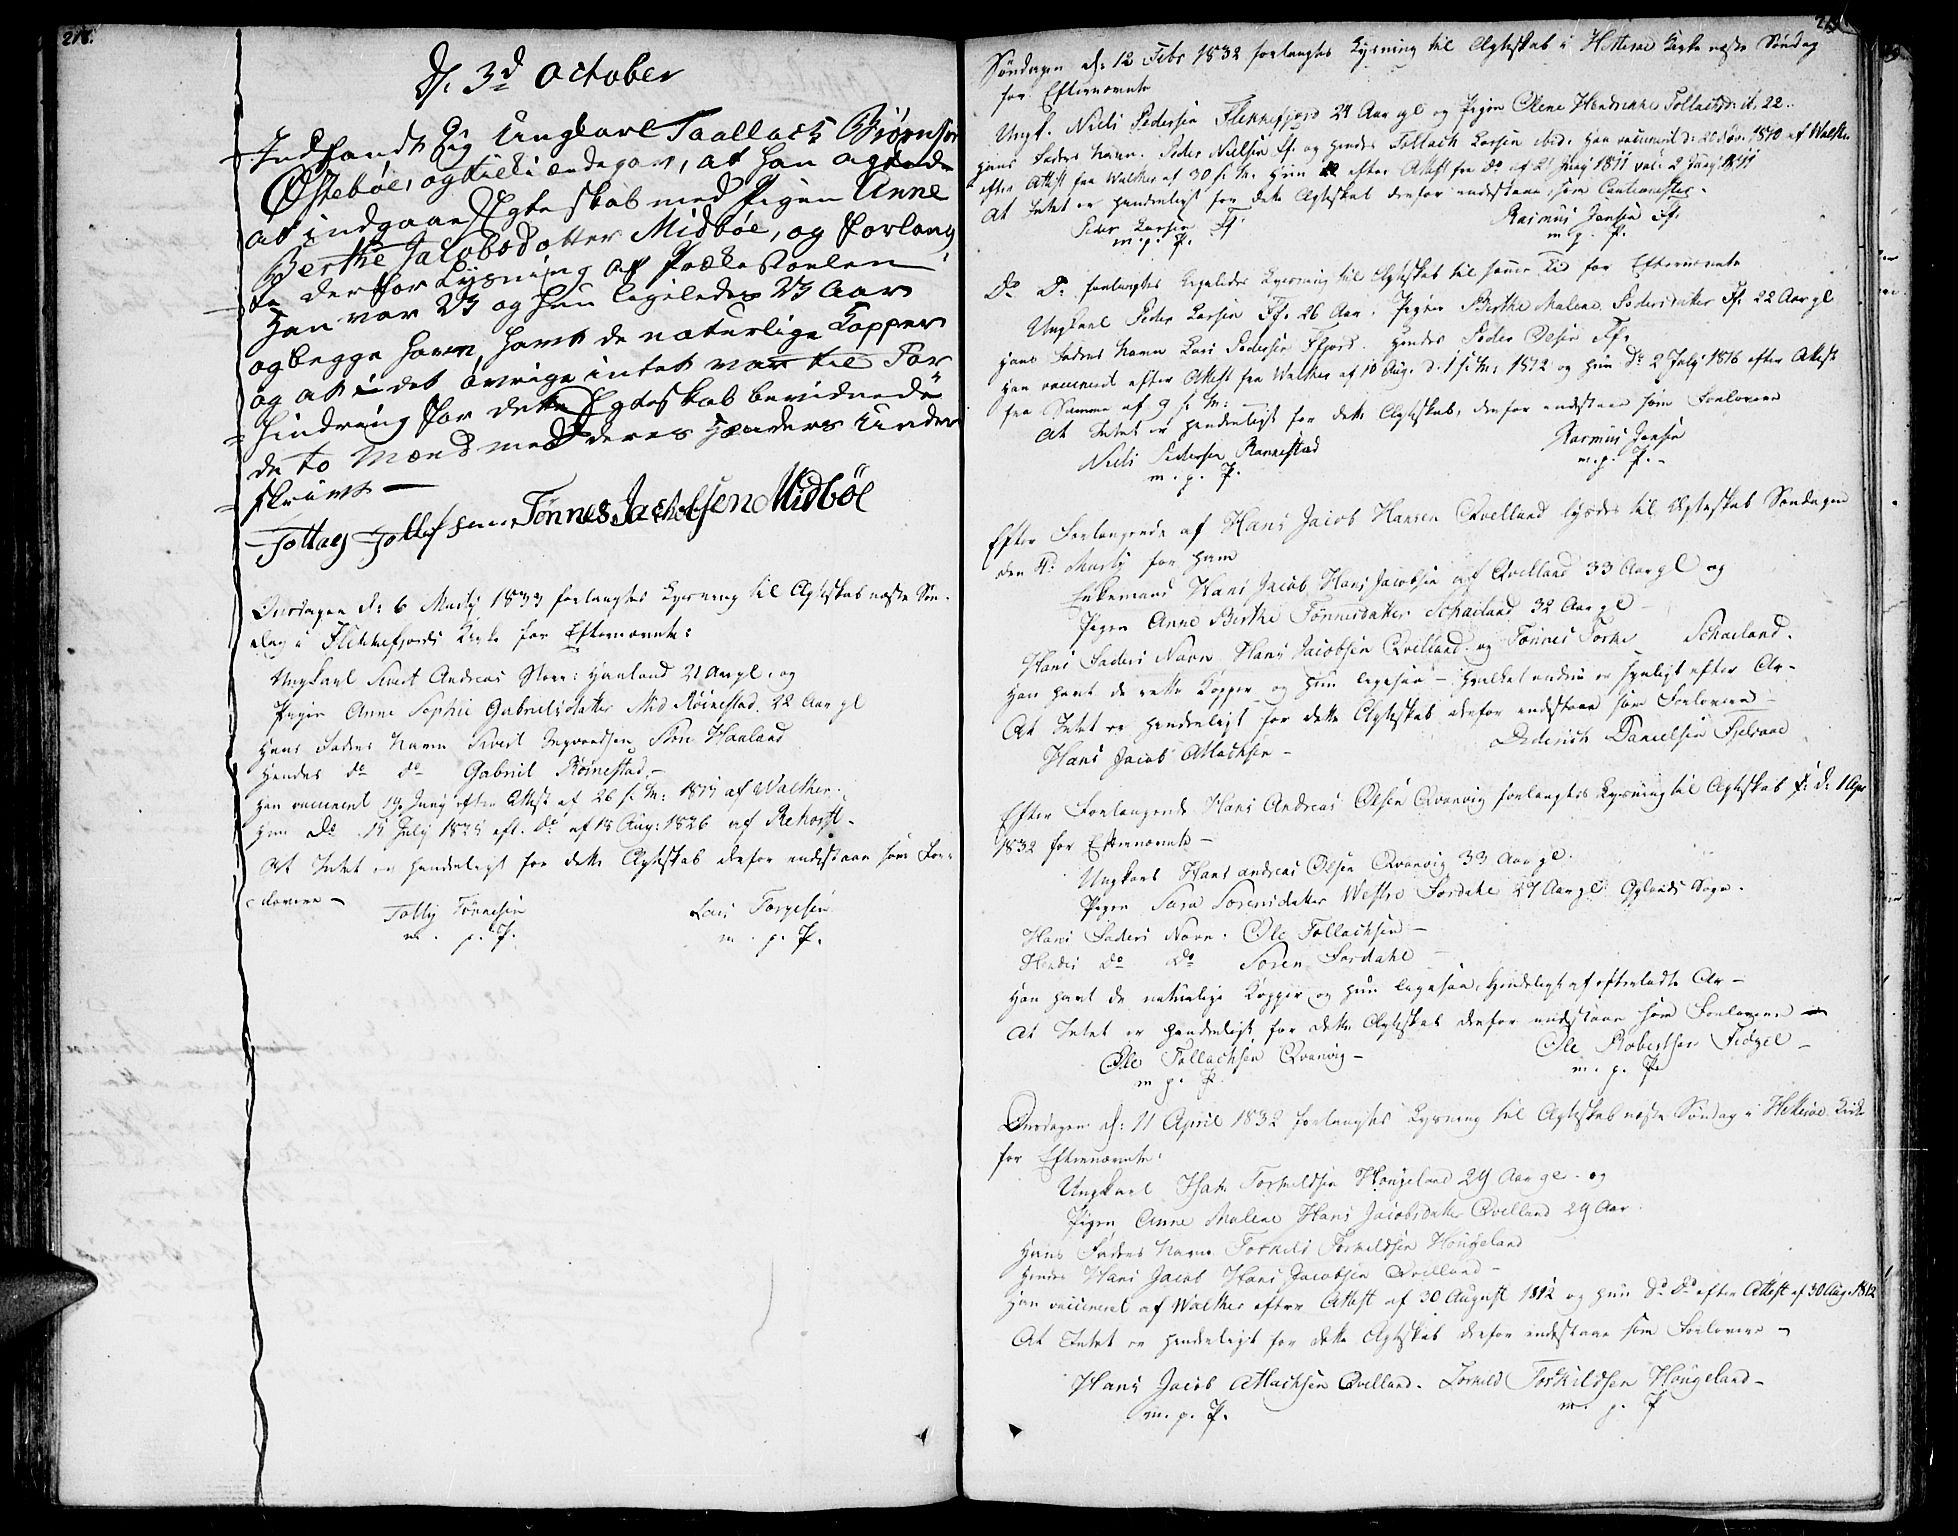 218.
D. 3d October
Indfandt Sig Ungkarl Taallack Biørnsen
Østebøe, og tilkiendegav, at han agtede
at indgaae Ægteskab med Pigen Anne
Berthe Jacobsdatter Midbøe, og forlang
te derfor Lysning af Prækestoelen
Han var 23 og hun ligeledes 23 Aar
og begge haver havt de naturlige Kopper
og at i det øvrige intet var til For
hindring for dette Ægteskab bevidnede
de to Mænd med deres Hænders Under
skrivt —
Tollag Tollefsen Tønnes Jachobsen Midbøe
Onsdagen d: 6 Marty 1833 forlangtes Lysning til Ægteskab næste Søn-
dag i Flekkefjords Kirke for Efternævnte:
Ungkarl Sivert Andreas Store: Hauland 21 Aar gl. og
Pigen Anne Sophie Gabrielsdatter Mid Røinestad. 22 Aar gl
Hans Faders Navn Sivert Ingvardsen Store Hauland
Hendes do do Gabriel Røinestad. —
Han vaccineret 19 Juny efter Attest af 26 s. M: af Walker.
Hun do 15 July eft. do af 18 Aug: 1826 af Rehorst —
At Intet er hinderligt for dette Ægteskab derfor indestaae som For-
lovere —
Tolly Tønnesen Lars Torgesen
m. p. P. m. p. P.
219
Søndagen d: 12 Febr 1832 forlangtes Lysning til Ægteskab i Hitterøe Kirke næste Søndag
for Efternævnte
Ungk. Niels Pedersen Flekkefjord 24 Aar gl og Pigen Olene Hendrikke Tollachsd: it. 22..
Hans Faders Navn. Peder Nielsen Ff. og hendes Tollach Larsen ibid. Han vaccineret d: 20 Nov. 1810 af Walker
efter Attest fra Walker af 30 s. M. Hun efter Attest fra do af 21 Juny 1811 vac: 2 Juny 1811
At Intet er hinderligt for dette Ægteskab derfor indestaae som Cautionister.
Peder Larsen Ff Rasmus Jansen Ff.
m. p. P. m. p. P.
do do forlangtes ligeledes Lysning til Ægteskab til samme Tid for Efternævnte
Ungkarl Peder Larsen Ff. 26 Aar. Pigen Birthe Malene Pedersdatter Ff. 22 Aar gl
Hans Faders Navn Lars Pedersen Ffjord. Hendes Peder Olsen Ff.
Han vaccineret efter Attest fra Walker af 18 Aug. d. 1 s. M: 1812 og hun do 2 July 1816 efter Attest
fra Samme af 9 s. M: —
At Intet er hinderligt for dette Ægteskab, derfor indestaae som Forlovere
Niels Pedersen Rannestad Rasmus Jansen
m. p. P. m. p. P. -
Efter Forlangende af Hans Jacob Hansen Qvelland lyses til Ægteskab Søndagen
den 4: Marty for ham
Enkemand Hans Jacob Hans Jacobsen af Qvelland 33 Aar gl og
Pigen Anne Birthe Tønnesdatter Schaeland 32 Aar gl —
Hans Faders Navn Hans Jacobsen Qvelland. og Tønnes Schaeland.
Han havt de rette Kopper og hun ligesaa — hvilket endnu er synligt efter Ar-
At Intet er hinderligt for dette Ægteskab derfor indestaae som Forlovere —
Hans Jacob Attachsen — Dederich Danielsen Fjelsaae
Efter Forlangende Hans Andreas Olsen Qvanvig forlangtes Lysning til Ægteskab d: 1 Apr
1832 for Efternævnte —
Ungkarl Hans Andreas Olsen Qvanvig 33 Aar gl.
Pigen Sara Sørensdatter Westre Førdahl 27 Aar gl. Gylands Sogn.
Hans Faders Navn. Ole Tollachsen —
Hendes do do Søren Førdahl —
Han havt de naturlige Kopper og hun ligesaa, kjendeligt af efterladte Ar —
At Intet er hinderligt for dette Ægteskab derfor indestaae som Forlovere —
Ole Tollachsen Qvanvig — Ole Robertsen Fidgel —
m. p. P. m. p. P.
Onsdagen d: 11 April 1832 forlangtes Lysning til Ægteskab næste Søndag i Hitterøe Kirke
for Efternævnte.
Ungkarl Isak Torkildsen Hougeland 29 Aar gl. og
Pigen Anne Malene Hans Jacobsdatter Qvelland 29 Aar.
Hans Faders Navn Torkild Torkildsen Hougeland
Hendes Hans Jacob Hans Jacobsen Qvelland —
Han vaccineret af Walker efter Attest af 30 August 1812 og hun do do efter Attest af 30 Aug. 1812
At Intet er hinderligt for dette Ægteskab derfor indestaae som Forlovere —
Hans Jacob Attachsen Qvelland. Torkild Torkildsen Hougeland —
m. p. P. m. p. P